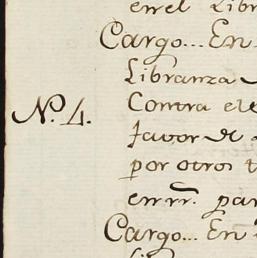 en el Libr
Cargo... En
Libranza
N.º 4. Contra el
favor de
por otros
en rr.ˢ par
Cargo... En